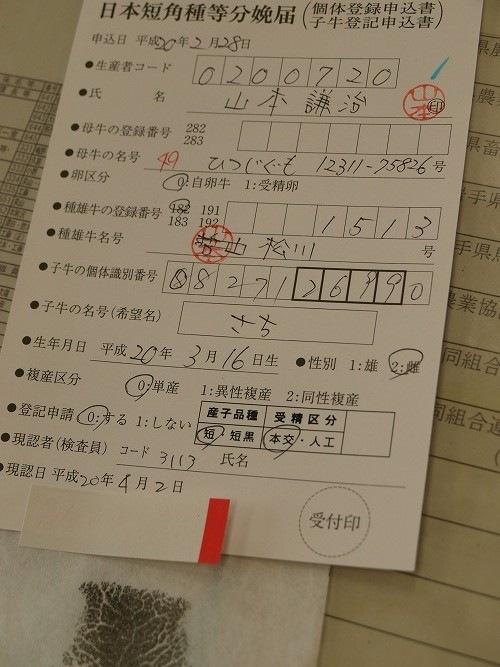 日本短角種等分娩届(個体登録申込書
子牛登記申込書)
申込日 平成20年2月28日
●生産者コード 0200720
●氏 名 山本謙治 印
●母牛の登録番号 282
283
●母牛の名号 49 ひつじぐも 12311-75826号
●卵区分 0:自卵牛 1:受精卵
●種雄牛の登録番号 182 191 1513
183 192
●種雄牛名号 松川 号
●子牛の個体識別番号 0827126990
●子牛の名号(希望名) さち
●生年月日 平成20年3月16日生 ●性別 1:雄 2:雌
●複産区分 0:単産 1:異性複産 2:同性複産
●登記申請 0:する 1:しない
産子品種 受精区分
短・短黒 本交・人工
●現認者(検査員) コード 3113 氏名
●現認日 平成20年4月2日
受付印